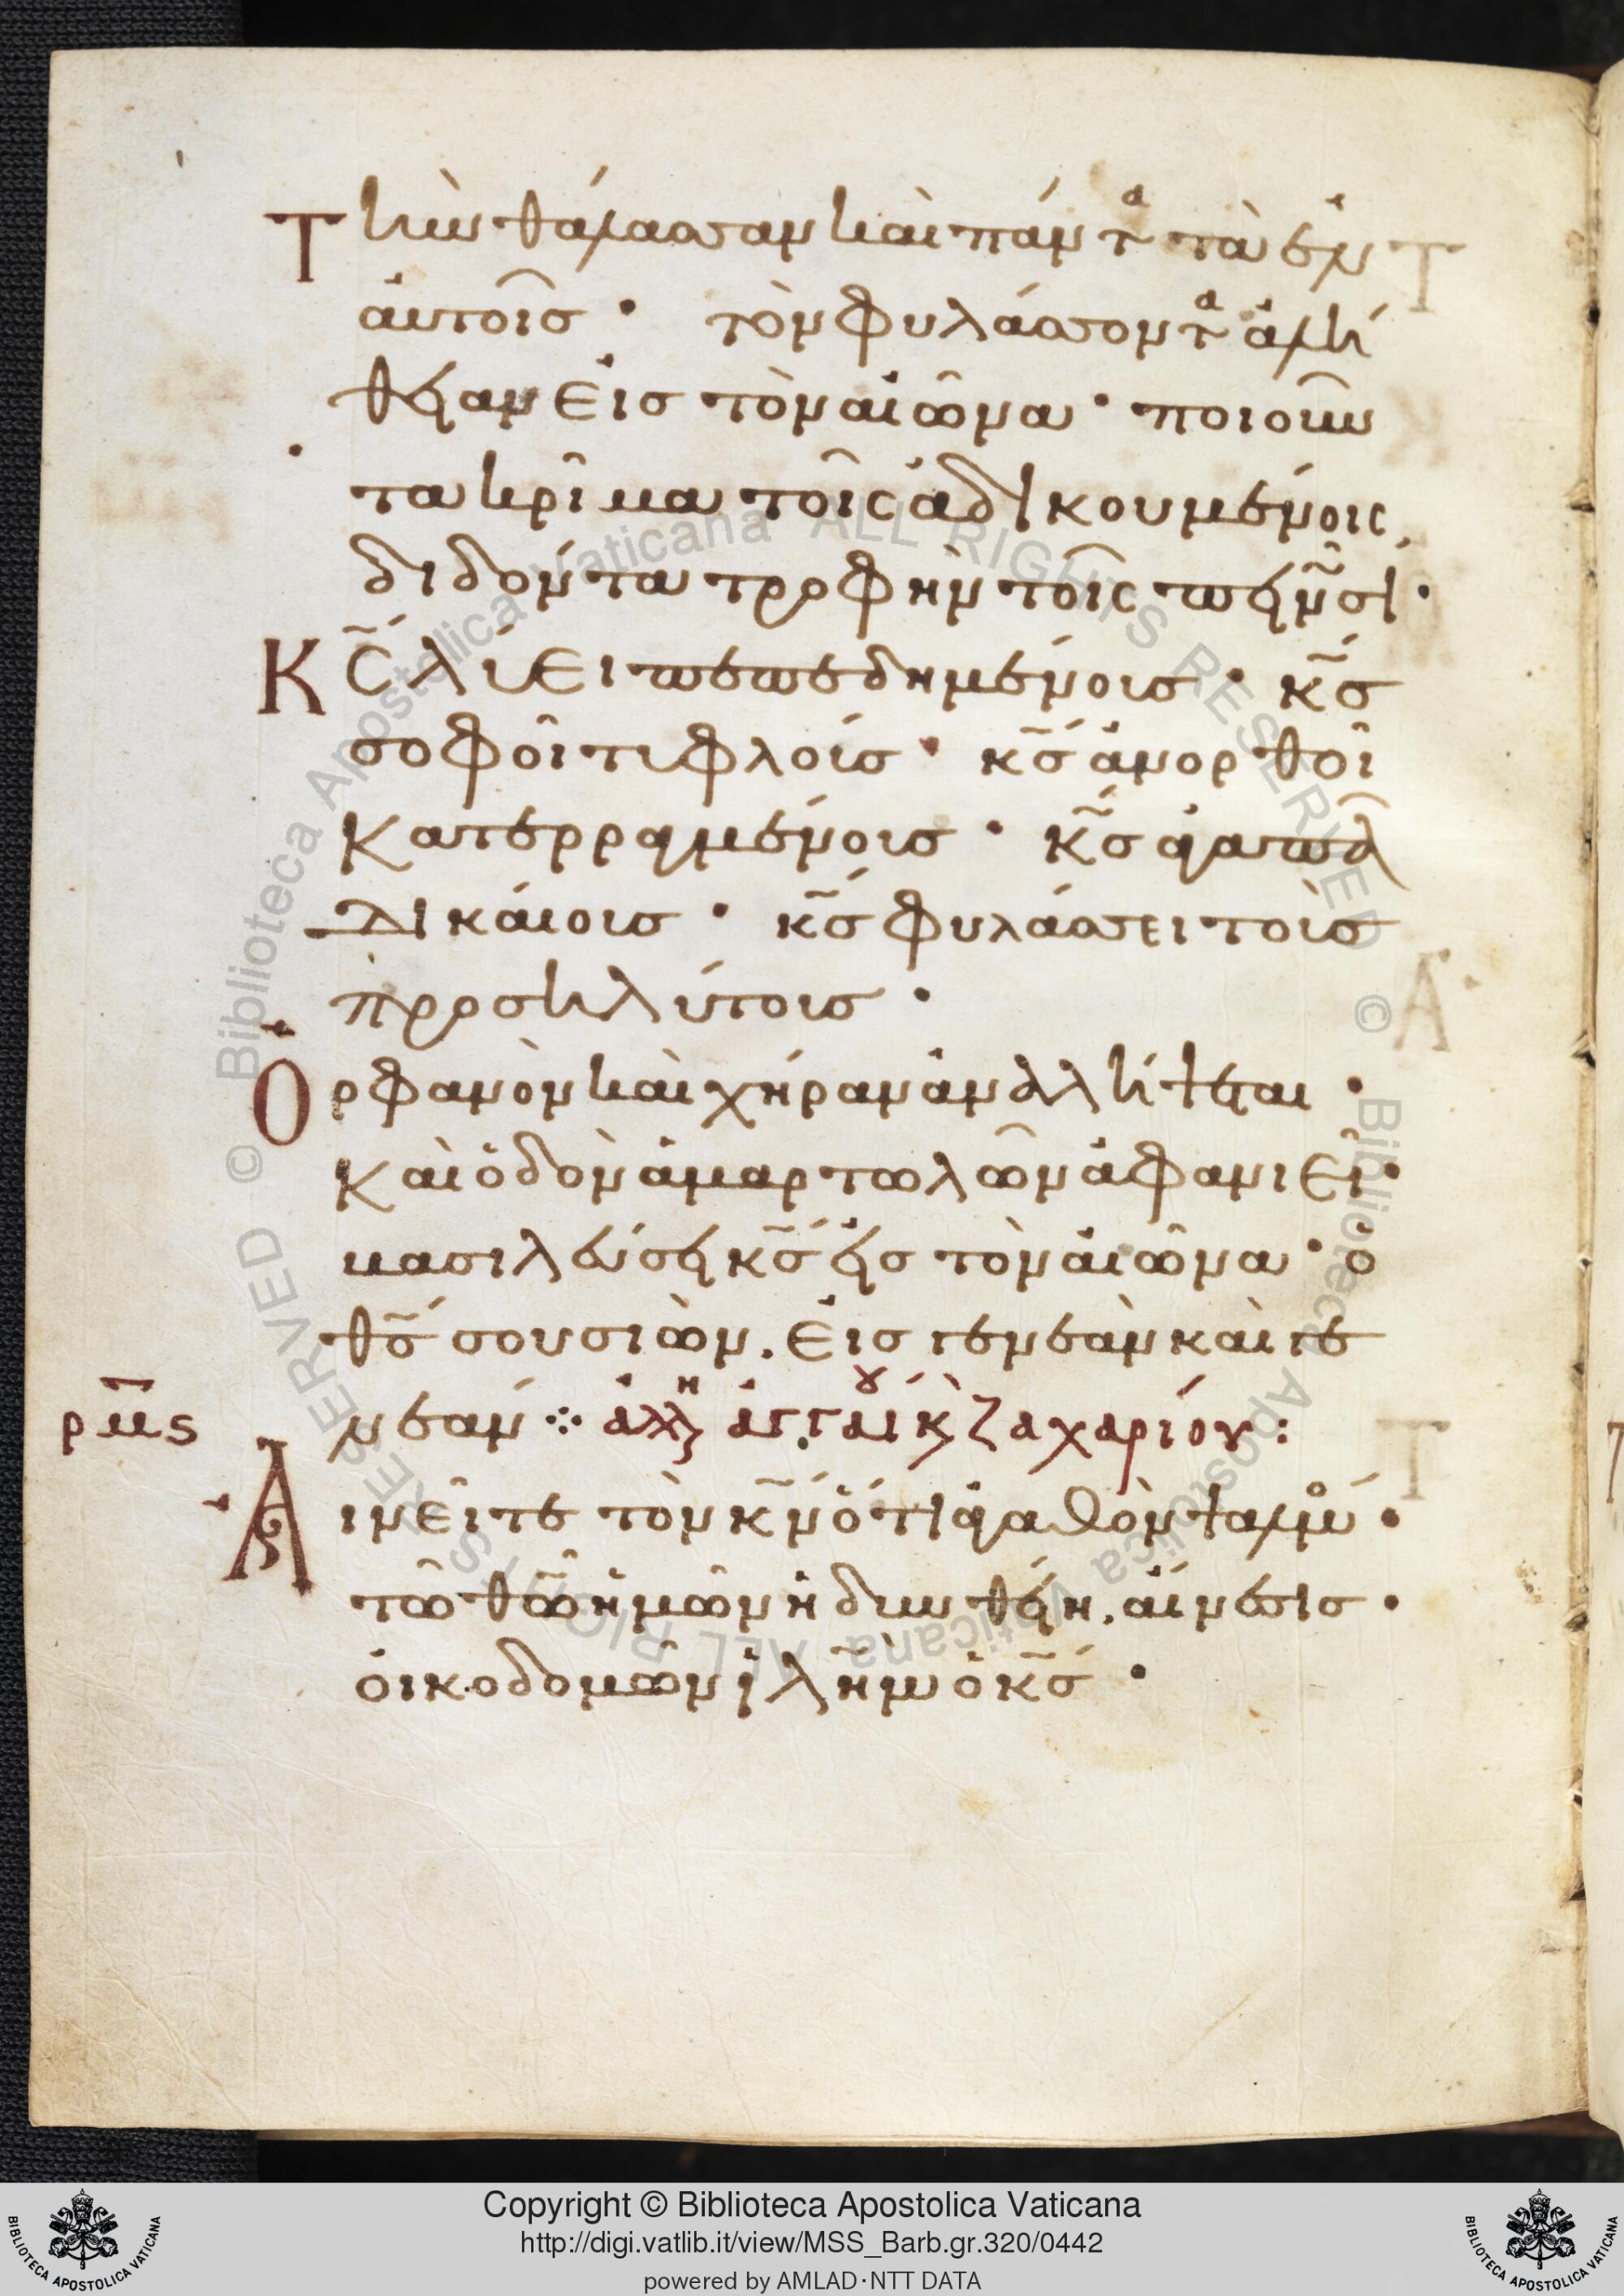 Τὴν θάλασσαν καὶ πάντα τὰ ἐν
ἀυτοῖσ · τὸν φυλάσσοντα ἀλή
θειαν εἰσ τὸν αἰῶνα · ποιοῦν
τα κρῖμα τοῖς ἀδικουμένοις,
διδόντα τροφὴν τοῖς πεινῶσι ·
Κς̃ λύει πεπεδημένοισ · κ̃σ
σοφοῖ τιφλούσ · κ̃σ ἀνορθοῖ
κατερραγμένοισ · κ̃σ ἀγαπᾶ
δικάιουσ · κ̃σ φυλάσσει τοὺσ
προσηλύτουσ ·
Ὀρφανὸν καὶ χήραν ἀναλήψεται ·
Καὶ ὁδὸν ἁμαρτωλῶν ἀφανιεῖ ·
βασιλεύσει κ̃σ εἰσ τὸν ἀιῶνα · ὁ
θ̃σ σου σιὼν. εἰσ γενεὰν καὶ γε
ρμς
νεάν ⁘ ἀλλη ἀγγαίου κ ζαχαρίου :
Αἰνεῖτε τὸν κ̃ν ὅτι ἀγαθὸν ψαλμόσ ·
τῶ θ̃ω ἡμῶν ἡδυνθείη. αἴνεσισ ·
ὀικοδομῶν ἰλ̃ημ ὁ κ̃σ ·
© Biblioteca Apostolica Vaticana ALL RIGHTS RESERVED © Biblioteca Apostolica Vaticana ALL RIGHTS RESERVED
Copyright © Biblioteca Apostolica Vaticana
http://digi.vatlib.it/view/MSS_Barb.gr.320/0442
powered by AMLAD·NTT DATA
BIBLIOTECA APOSTOLICA VATICANA
BIBLIOTECA APOSTOLICA VATICANA